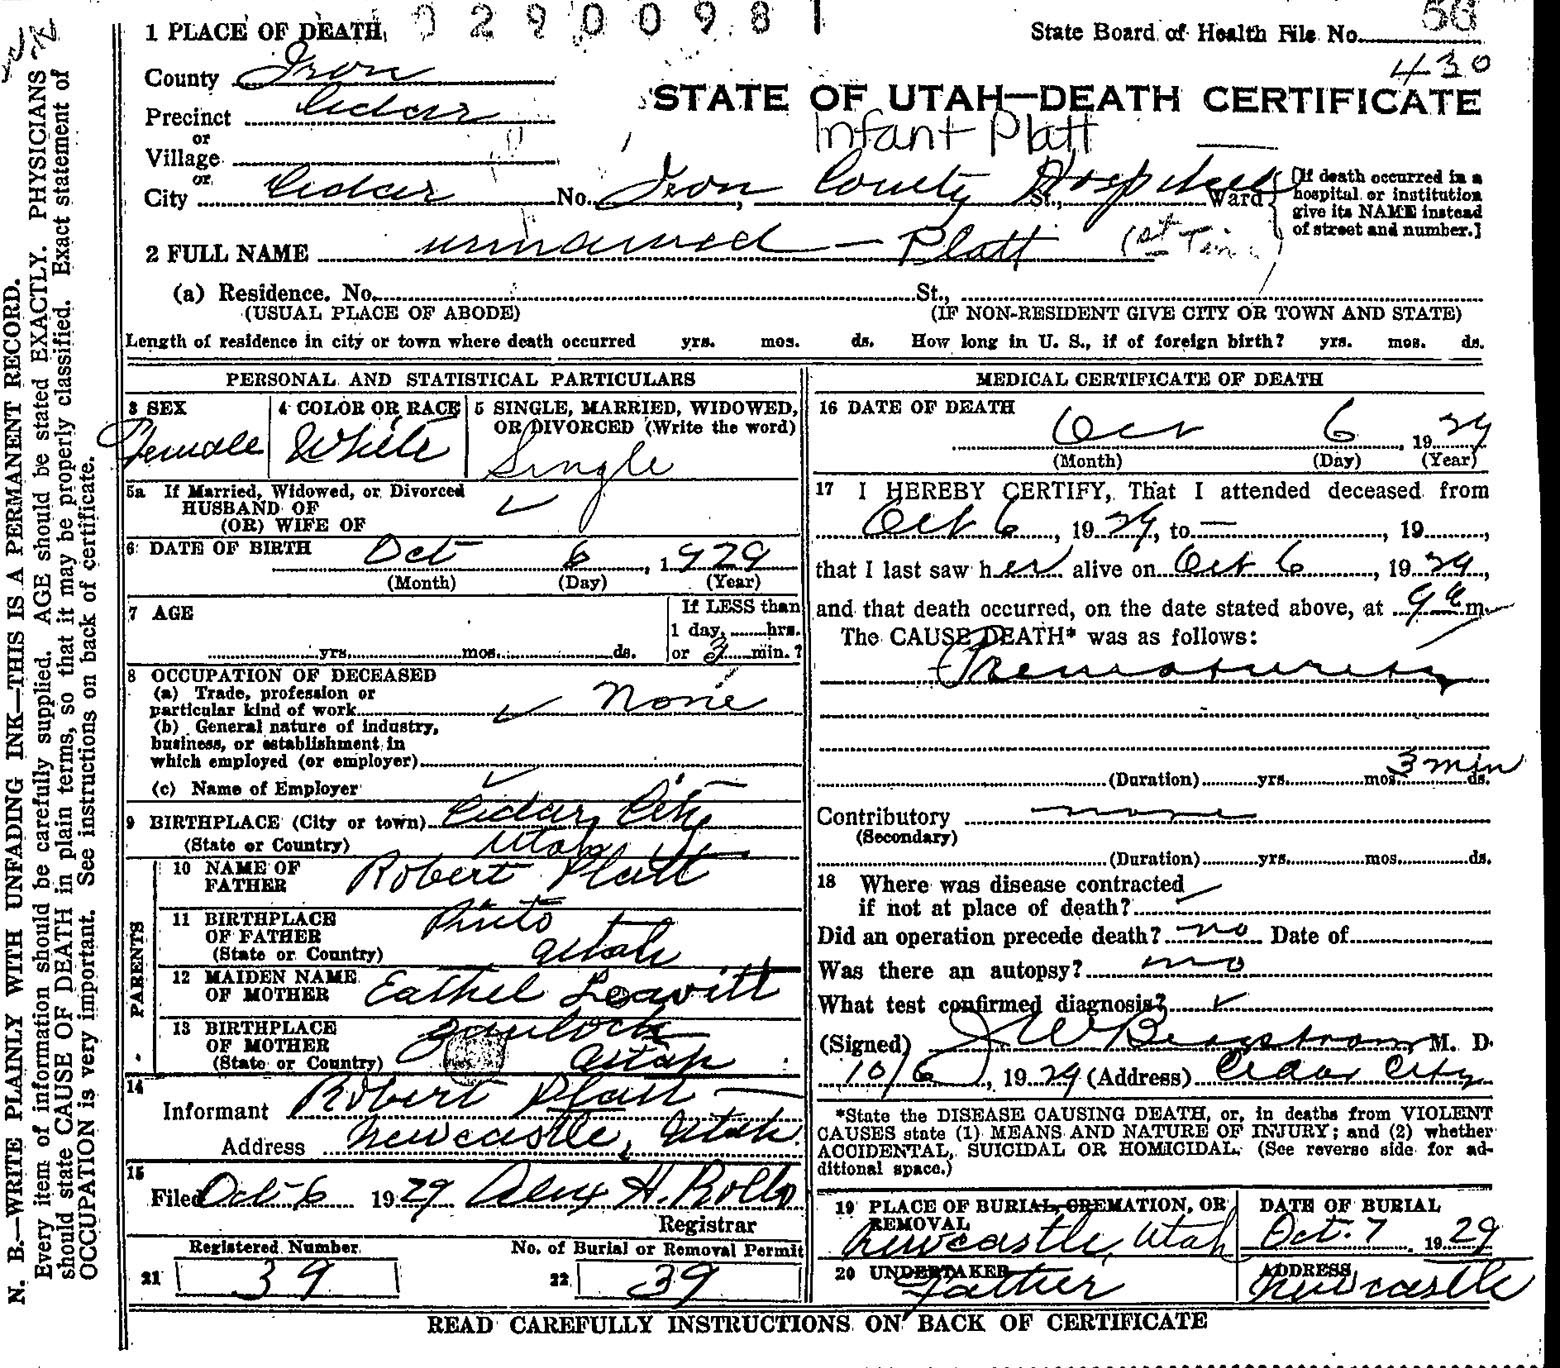 1 PLACE OF DEATH
0290098 1
State Board of Health File No. 56
430
County Iron
STATE OF UTAH—DEATH CERTIFICATE
Precinct Cedar
Infant Platt
or
Village
or
City Cedar No. Iron County Hospital St., Ward
[If death occurred in a
hospital or institution
give its NAME instead
of street and number.]
2 FULL NAME unnamed — Platt (1st Twin)
(a) Residence. No. St.,
(USUAL PLACE OF ABODE) (IF NON-RESIDENT GIVE CITY OR TOWN AND STATE)
Length of residence in city or town where death occurred yrs. mos. ds. How long in U. S., if of foreign birth? yrs. mos. ds.
PERSONAL AND STATISTICAL PARTICULARS
3 SEX
Female
4 COLOR OR RACE
White
5 SINGLE, MARRIED, WIDOWED,
OR DIVORCED (Write the word)
Single
5a If Married, Widowed, or Divorced
HUSBAND OF
(OR) WIFE OF
6 DATE OF BIRTH Oct 6, 1929
(Month) (Day) (Year)
7 AGE
yrs. mos. ds.
If LESS than
1 day, hrs.
or 3 min.?
8 OCCUPATION OF DECEASED
(a) Trade, profession or
particular kind of work None
(b) General nature of industry,
business, or establishment in
which employed (or employer)
(c) Name of Employer
9 BIRTHPLACE (City or town) Cedar City
(State or Country) Utah
PARENTS
10 NAME OF
FATHER Robert Platt
11 BIRTHPLACE
OF FATHER Pinto
(State or Country) Utah
12 MAIDEN NAME
OF MOTHER Eathel Leavitt
13 BIRTHPLACE
OF MOTHER Gunlock
(State or Country) Utah
14
Informant Robert Platt
Address Newcastle, Utah
15
Filed Oct-6 1929 Alex H. Rollo
Registrar
Registered Number
21 39
No. of Burial or Removal Permit
22 39
MEDICAL CERTIFICATE OF DEATH
16 DATE OF DEATH
Oct 6, 1929
(Month) (Day) (Year)
17 I HEREBY CERTIFY, That I attended deceased from
Oct 6, 1929, to —, 19
that I last saw her alive on Oct 6, 1929,
and that death occurred, on the date stated above, at 9 a m.
The CAUSE DEATH* was as follows:
Prematurity
(Duration) yrs. mos. 3 min ds.
Contributory none
(Secondary)
(Duration) yrs. mos. ds.
18 Where was disease contracted
if not at place of death?
Did an operation precede death? no Date of
Was there an autopsy? no
What test confirmed diagnosis?
(Signed) J W Bergstrom M. D.
10/6, 1929 (Address) Cedar City
*State the DISEASE CAUSING DEATH, or, in deaths from VIOLENT
CAUSES state (1) MEANS AND NATURE OF INJURY; and (2) whether
ACCIDENTAL, SUICIDAL OR HOMICIDAL. (See reverse side for ad-
ditional space.)
19 PLACE OF BURIAL, CREMATION, OR
REMOVAL
Newcastle, Utah
DATE OF BURIAL
Oct. 7, 1929
20 UNDERTAKER
Father
ADDRESS
Newcastle
READ CAREFULLY INSTRUCTIONS ON BACK OF CERTIFICATE
N. B.—WRITE PLAINLY WITH UNFADING INK—THIS IS A PERMANENT RECORD.
Every item of information should be carefully supplied. AGE should be stated EXACTLY. PHYSICIANS
should state CAUSE OF DEATH in plain terms, so that it may be properly classified. Exact statement of
OCCUPATION is very important. See instructions on back of certificate.